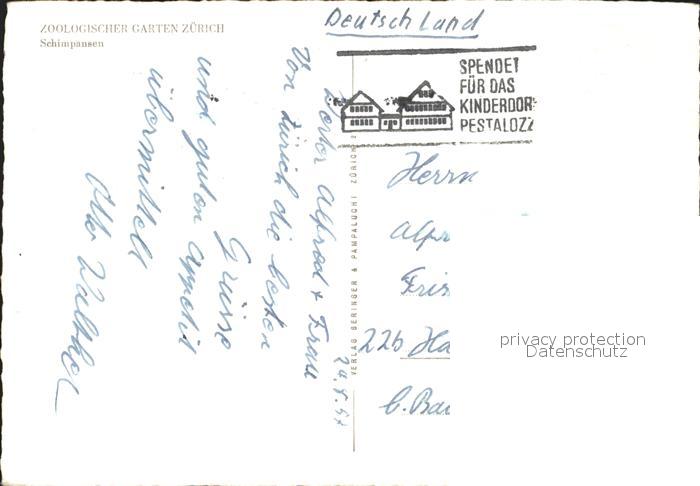 ZOOLOGISCHER GARTEN ZÜRICH
Schimpansen
Deutschland
SPENDET
FÜR DAS
KINDERDORF
PESTALOZZ
24.8.57
Alfred + Frau
Von Zürich die besten
Grüsse
und guten Appetit
übermittelt
Otto Walther
VERLAG BERINGER & PAMPALUCHI ZÜRICH
Herrn
privacy protection
Datenschutz